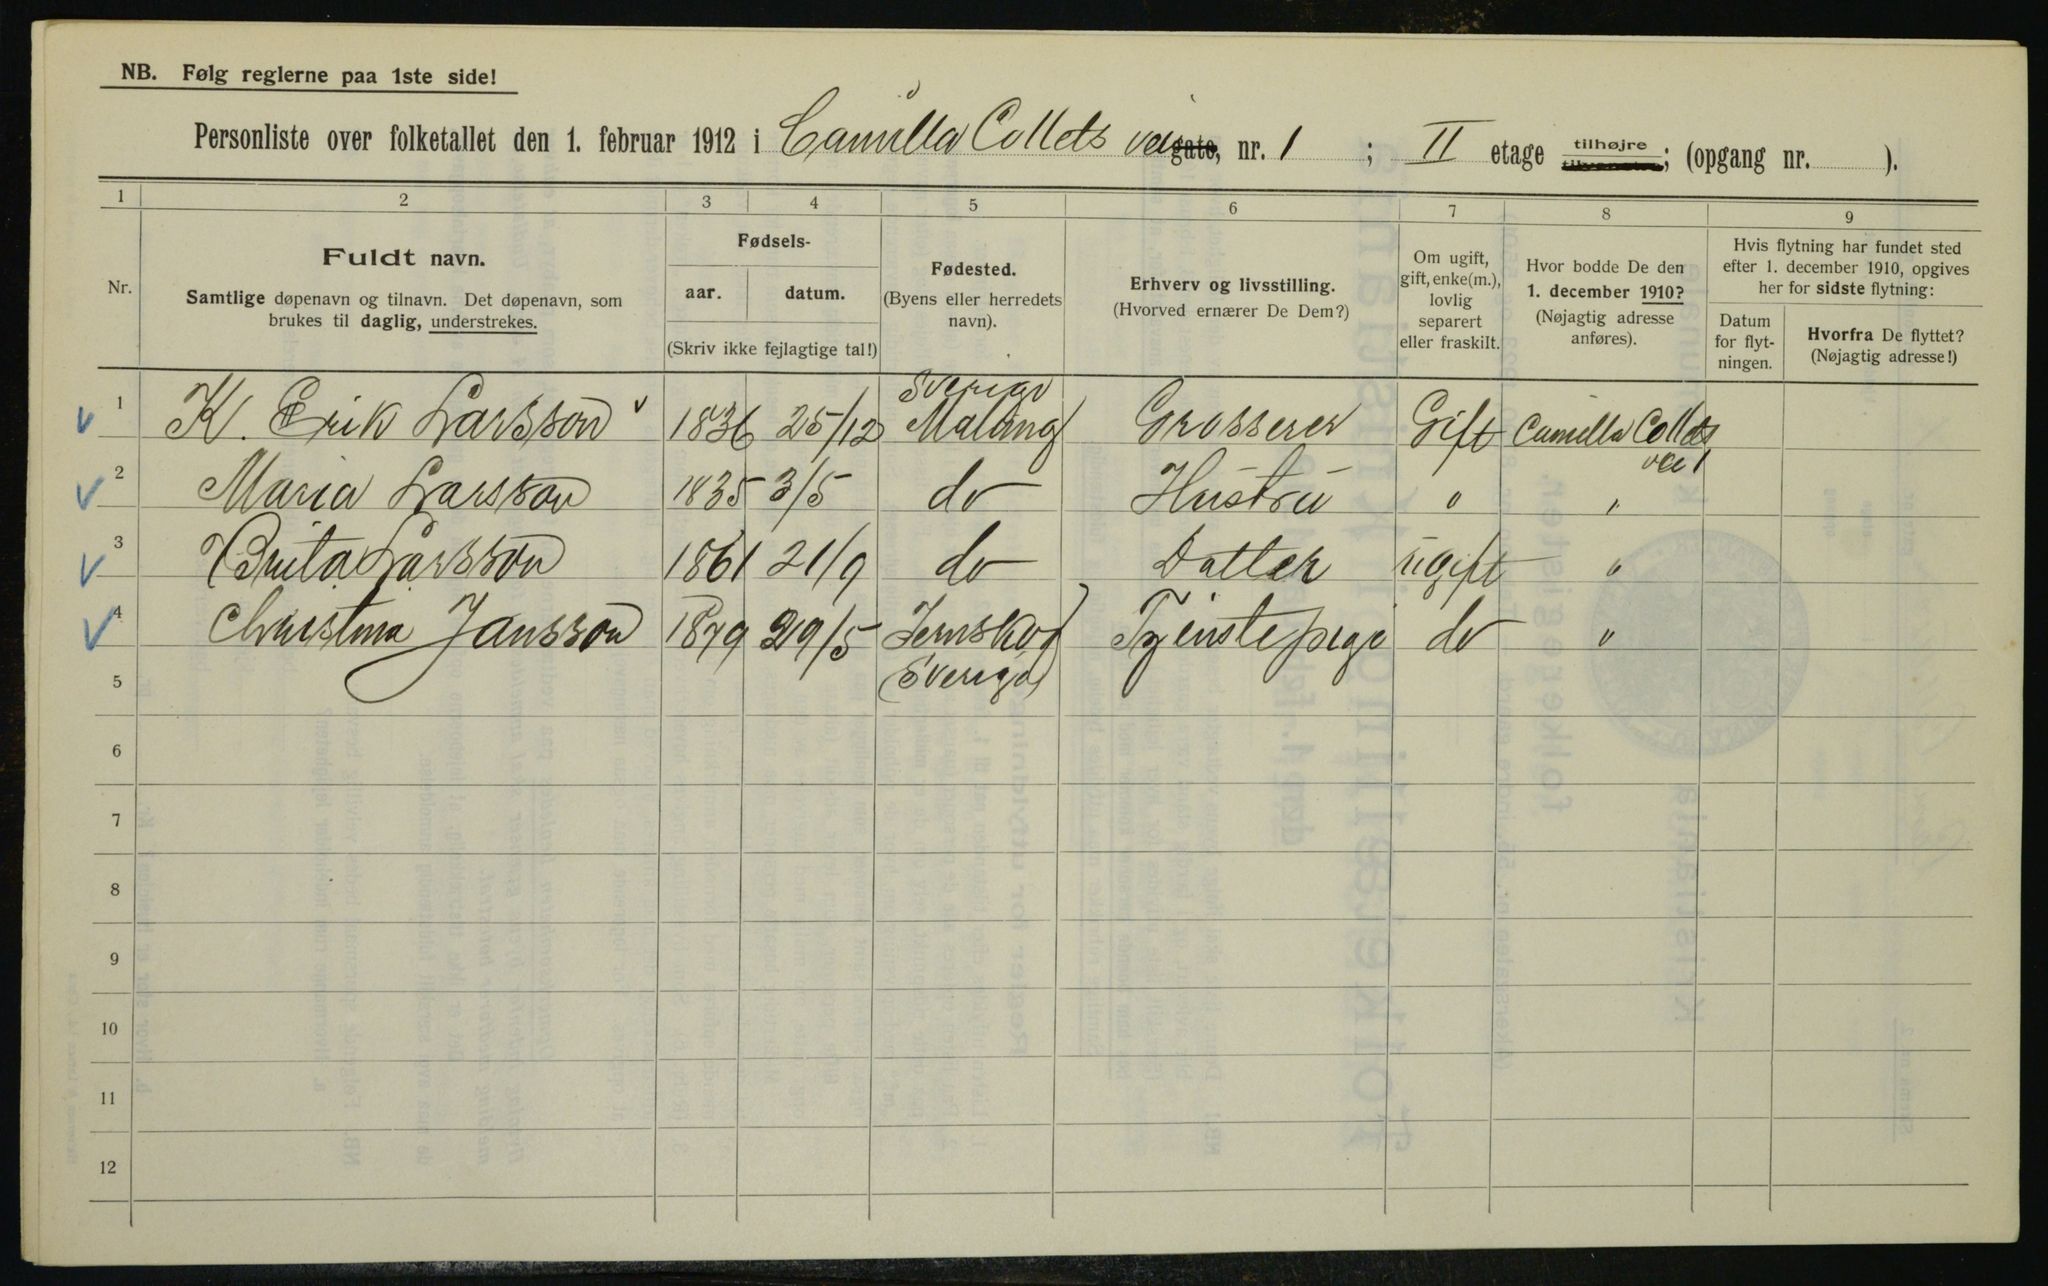 NB. Følg reglerne paa 1ste side!
Personliste over folketallet den 1. februar 1912 i Camilla Colletsveigate, nr. 1 ; II etage tilhøjre tilvenstre; (opgang nr. ).
1 2 3 4 5 6 7 8 9
Nr.
Fuldt navn.
Samtlige døpenavn og tilnavn. Det døpenavn, som
brukes til daglig, understrekes.
Fødsels-
aar. datum.
(Skriv ikke fejlagtige tal!)
Fødested.
(Byens eller herredets
navn).
Erhverv og livsstilling.
(Hvorved ernærer De Dem?)
Om ugift,
gift, enke(m.),
lovlig
separert
eller fraskilt.
Hvor bodde De den
1. december 1910?
(Nøjagtig adresse
anføres).
Hvis flytning har fundet sted
efter 1. december 1910, opgives
her for sidste flytning:
Datum
for flyt-
ningen.
Hvorfra De flyttet?
(Nøjagtig adresse!)
Sverige
1 K. Erik Larsson 1836 25/12 Malung Grosserer Gift Camilla Collets
vei 1
2 Maria Larsson 1835 3/5 do Hustru " "
3 Brita Larsson 1861 21/9 do Datter ugift "
4 Christina Jansson 1879 29/5 Jernskog Tjenstepige do "
5 (Sverige)
6
7
8
9
10
11
12